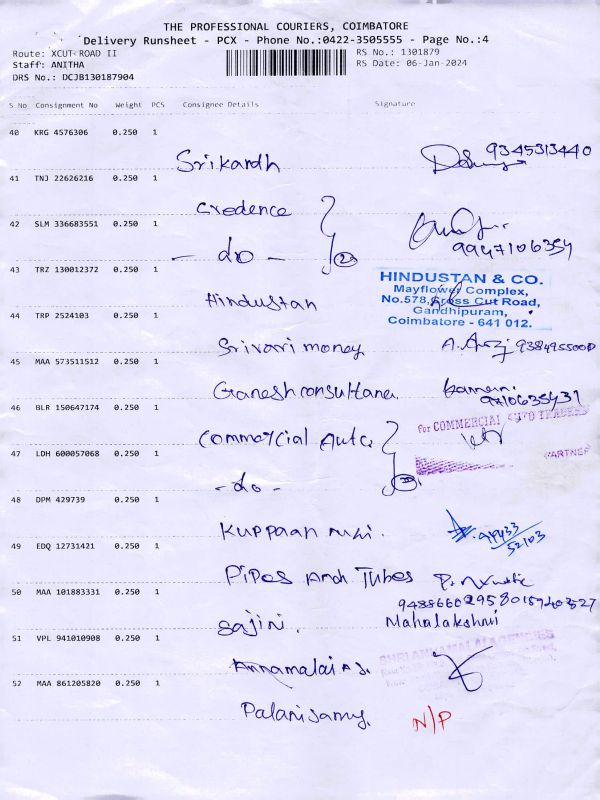 THE PROFESSIONAL COURIERS, COIMBATORE
Delivery Runsheet - PCX - Phone No.:0422-3505555 - Page No.:4
Route: XCUT ROAD II
Staff: ANITHA
DRS No.: DCJB130187904
RS No.: 1301879
RS Date: 06-Jan-2024
S No Consignment No Weight PCS Consignee Details Signature
40 KRG 4576306 0.250 1
Srikardh 9345313440
41 TNJ 22626216 0.250 1
Credence
42 SLM 336683551 0.250 1
- do - 2 9947106354
43 TRZ 130012372 0.250 1
HINDUSTAN & CO.
Mayflower Complex,
Hindustan No.578,Cross Cut Road,
Gandhipuram,
44 TRP 2524103 0.250 1
Coimbatore - 641 012.
Srivari money
45 MAA 573511512 0.250 1
Ganesh consultane 9710635431
46 BLR 150647174 0.250 1
for COMMERCIAL AUTO TRADERS
Commercial Auto
47 LDH 600057068 0.250 1
PARTNER
- do -
48 DPM 429739 0.250 1
Kuppaan
49 EDQ 12731421 0.250 1
Pipes And Tubes
50 MAA 101883331 0.250 1
Sajini. Mahalakshmi
51 VPL 941010908 0.250 1
Annamalai
52 MAA 861205820 0.250 1
Palanisamy. N/P